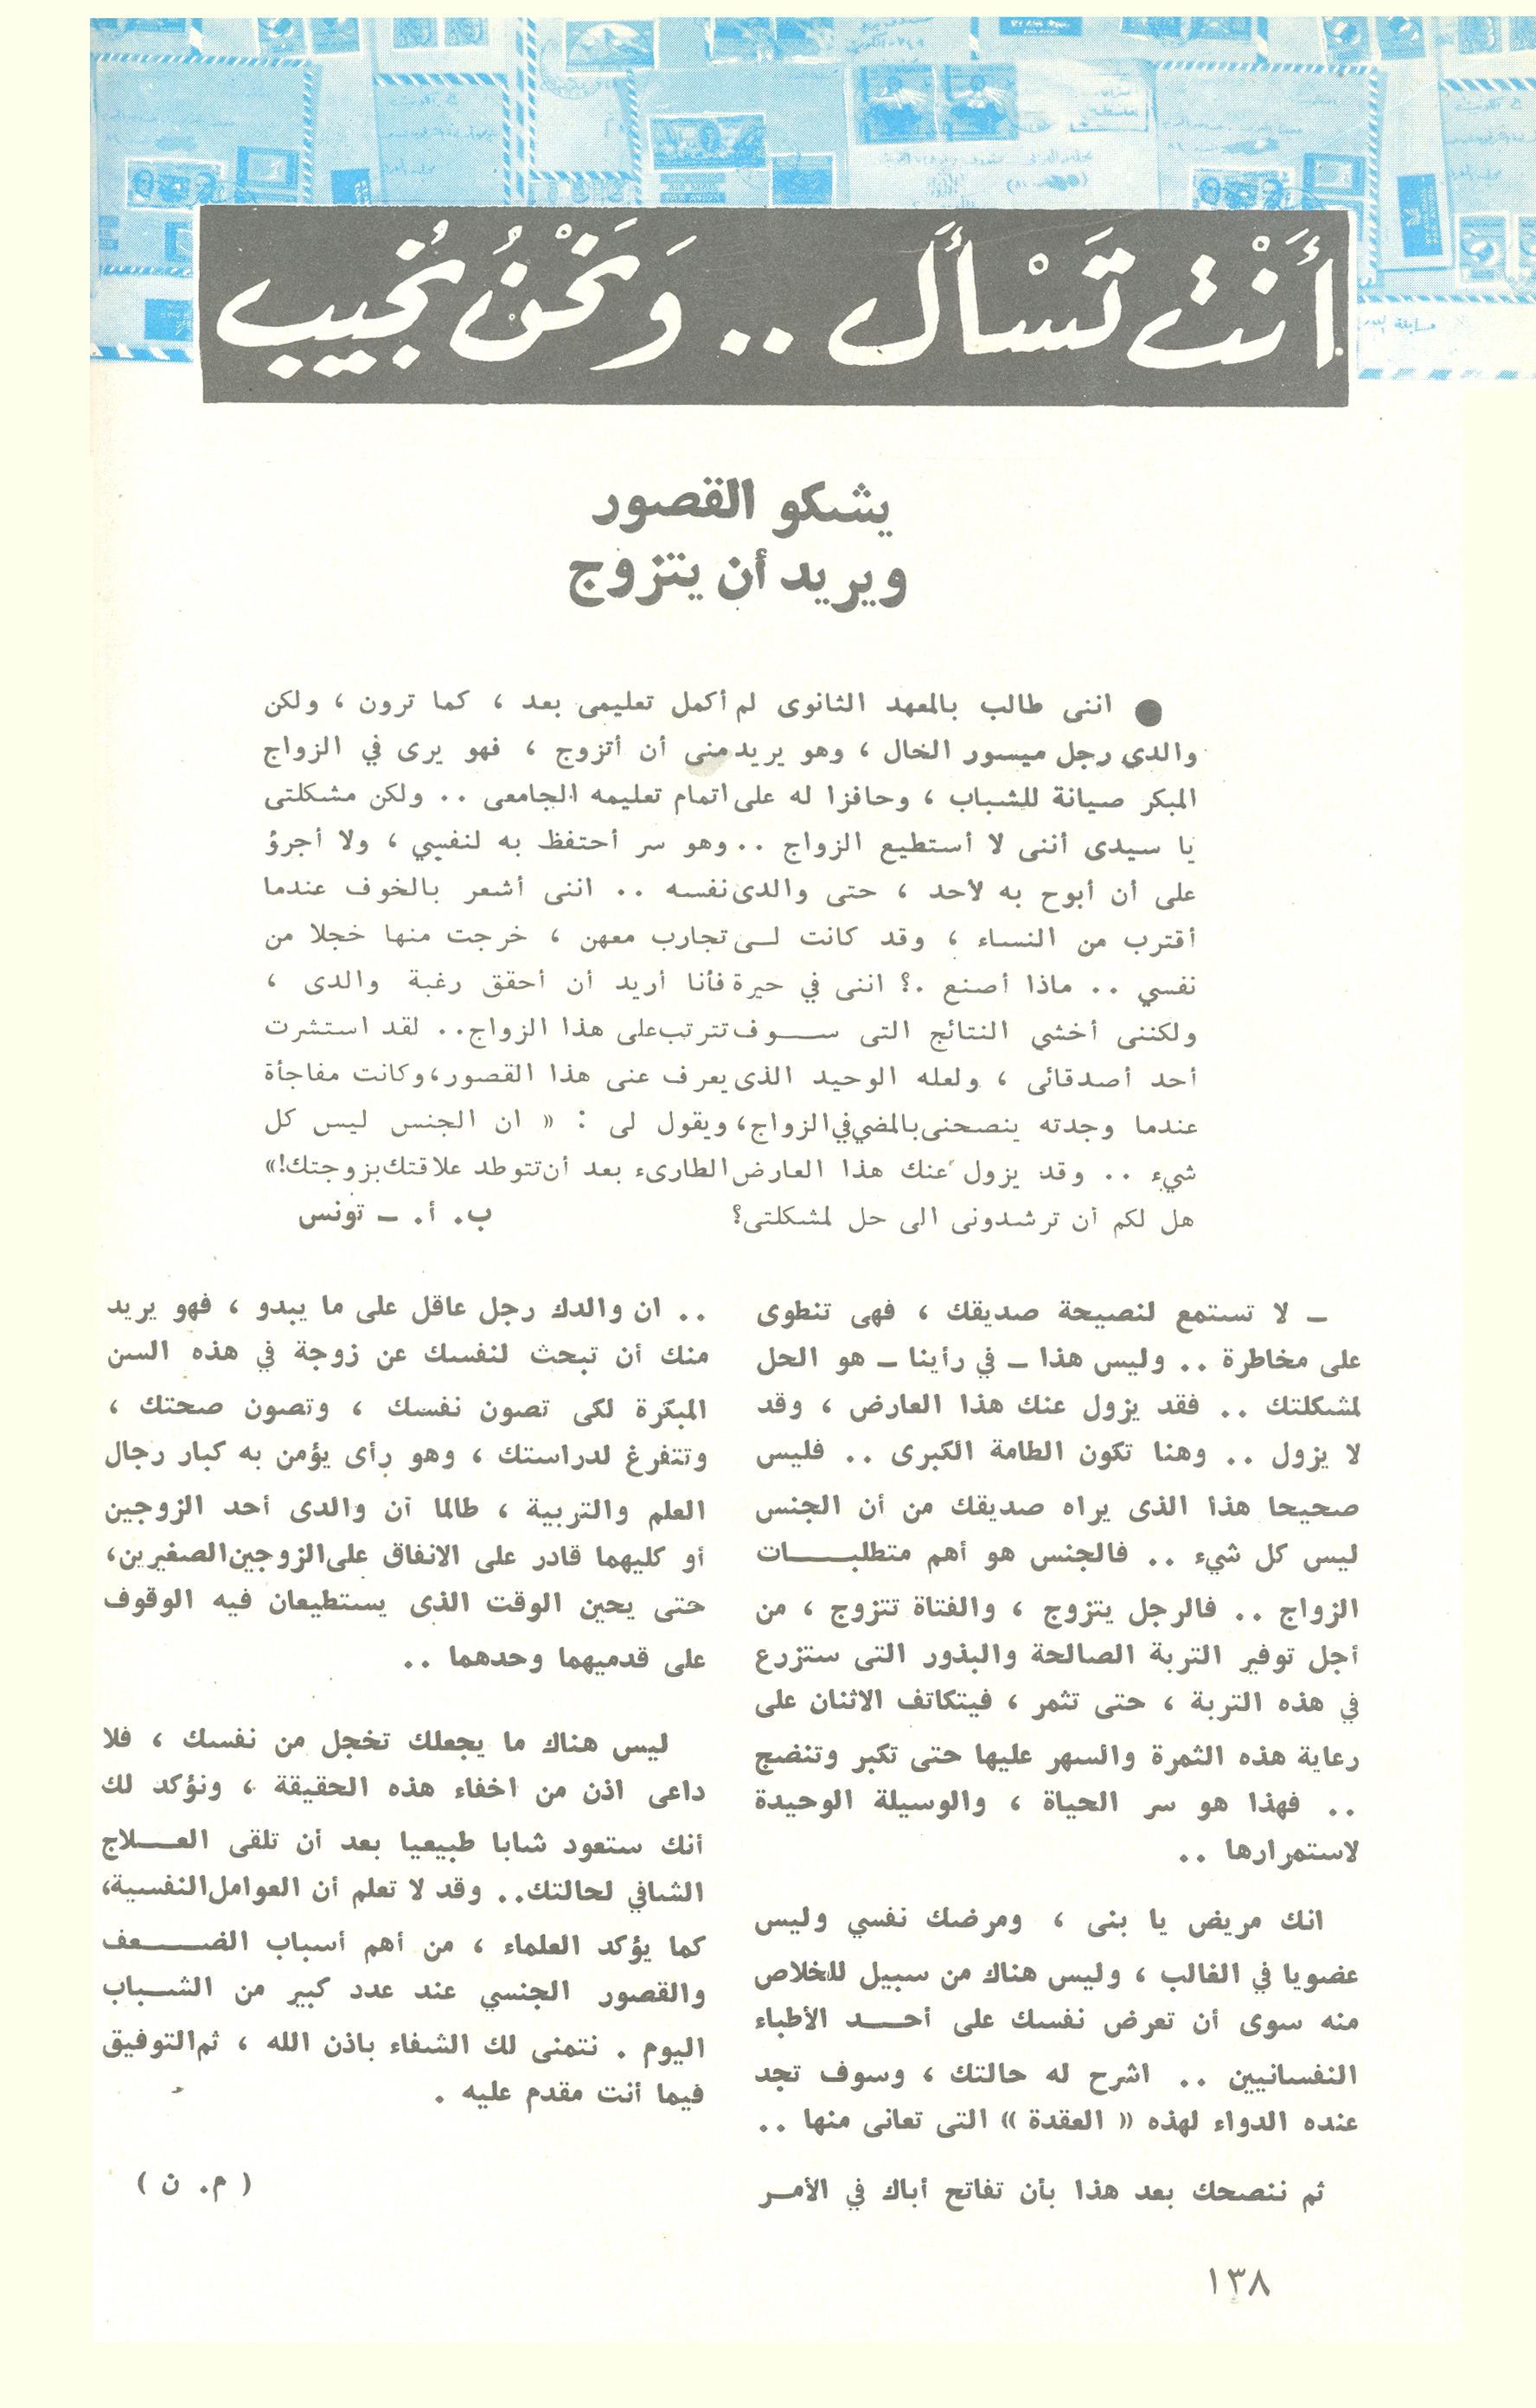 أَنْتَ تَسْأَل .. وَنَحْنُ نُجيب
يشكو القصور
ويريد أن يتزوج
● اننى طالب بالمعهد الثانوى لم أكمل تعليمى بعد ، كما ترون ، ولكن
والدي رجل ميسور الحال ، وهو يريد منى أن أتزوج ، فهو يرى في الزواج
المبكر صيانة للشباب ، وحافزا له على اتمام تعليمه الجامعى .. ولكن مشكلتى
يا سيدى أننى لا أستطيع الزواج .. وهو سر أحتفظ به لنفسي ، ولا أجرؤ
على أن أبوح به لأحد ، حتى والدى نفسه .. اننى أشعر بالخوف عندما
أقترب من النساء ، وقد كانت لى تجارب معهن ، خرجت منها خجلا من
نفسي .. ماذا أصنع .؟ اننى في حيرة فأنا أريد أن أحقق رغبة والدى ،
ولكننى أخشي النتائج التى سوف تترتب على هذا الزواج .. لقد استشرت
أحد أصدقائى ، ولعله الوحيد الذى يعرف عنى هذا القصور، وكانت مفاجأة
عندما وجدته ينصحنى بالمضي في الزواج، ويقول لى : « ان الجنس ليس كل
شيء .. وقد يزول عنك هذا العارض الطارىء بعد أن تتوطد علاقتك بزوجتك!»
هل لكم أن ترشدونى الى حل لمشكلتى؟
ب. أ. ـ تونس
ـ لا تستمع لنصيحة صديقك ، فهى تنطوى
على مخاطرة .. وليس هذا ـ في رأينا ـ هو الحل
لمشكلتك .. فقد يزول عنك هذا العارض ، وقد
لا يزول .. وهنا تكون الطامة الكبرى .. فليس
صحيحا هذا الذى يراه صديقك من أن الجنس
ليس كل شيء .. فالجنس هو أهم متطلبات
الزواج .. فالرجل يتزوج ، والفتاة تتزوج ، من
أجل توفير التربة الصالحة والبذور التى ستزرع
في هذه التربة ، حتى تثمر ، فيتكاتف الاثنان على
رعاية هذه الثمرة والسهر عليها حتى تكبر وتنضج
.. فهذا هو سر الحياة ، والوسيلة الوحيدة
لاستمرارها ..
انك مريض يا بنى ، ومرضك نفسي وليس
عضويا في الغالب ، وليس هناك من سبيل للخلاص
منه سوى أن تعرض نفسك على أحد الأطباء
النفسانيين .. اشرح له حالتك ، وسوف تجد
عنده الدواء لهذه « العقدة » التى تعانى منها ..
ثم ننصحك بعد هذا بأن تفاتح أباك في الأمر
.. ان والدك رجل عاقل على ما يبدو ، فهو يريد
منك أن تبحث لنفسك عن زوجة في هذه السن
المبكرة لكى تصون نفسك ، وتصون صحتك ،
وتتفرغ لدراستك ، وهو رأى يؤمن به كبار رجال
العلم والتربية ، طالما أن والدى أحد الزوجين
أو كليهما قادر على الانفاق على الزوجين الصغيرين،
حتى يحين الوقت الذى يستطيعان فيه الوقوف
على قدميهما وحدهما ..
ليس هناك ما يجعلك تخجل من نفسك ، فلا
داعى اذن من اخفاء هذه الحقيقة ، ونؤكد لك
أنك ستعود شابا طبيعيا بعد أن تلقى العلاج
الشافي لحالتك.. وقد لا تعلم أن العوامل النفسية،
كما يؤكد العلماء ، من أهم أسباب الضعف
والقصور الجنسي عند عدد كبير من الشباب
اليوم . نتمنى لك الشفاء باذن الله ، ثم التوفيق
فيما أنت مقدم عليه .
( م. ن )
١٣٨